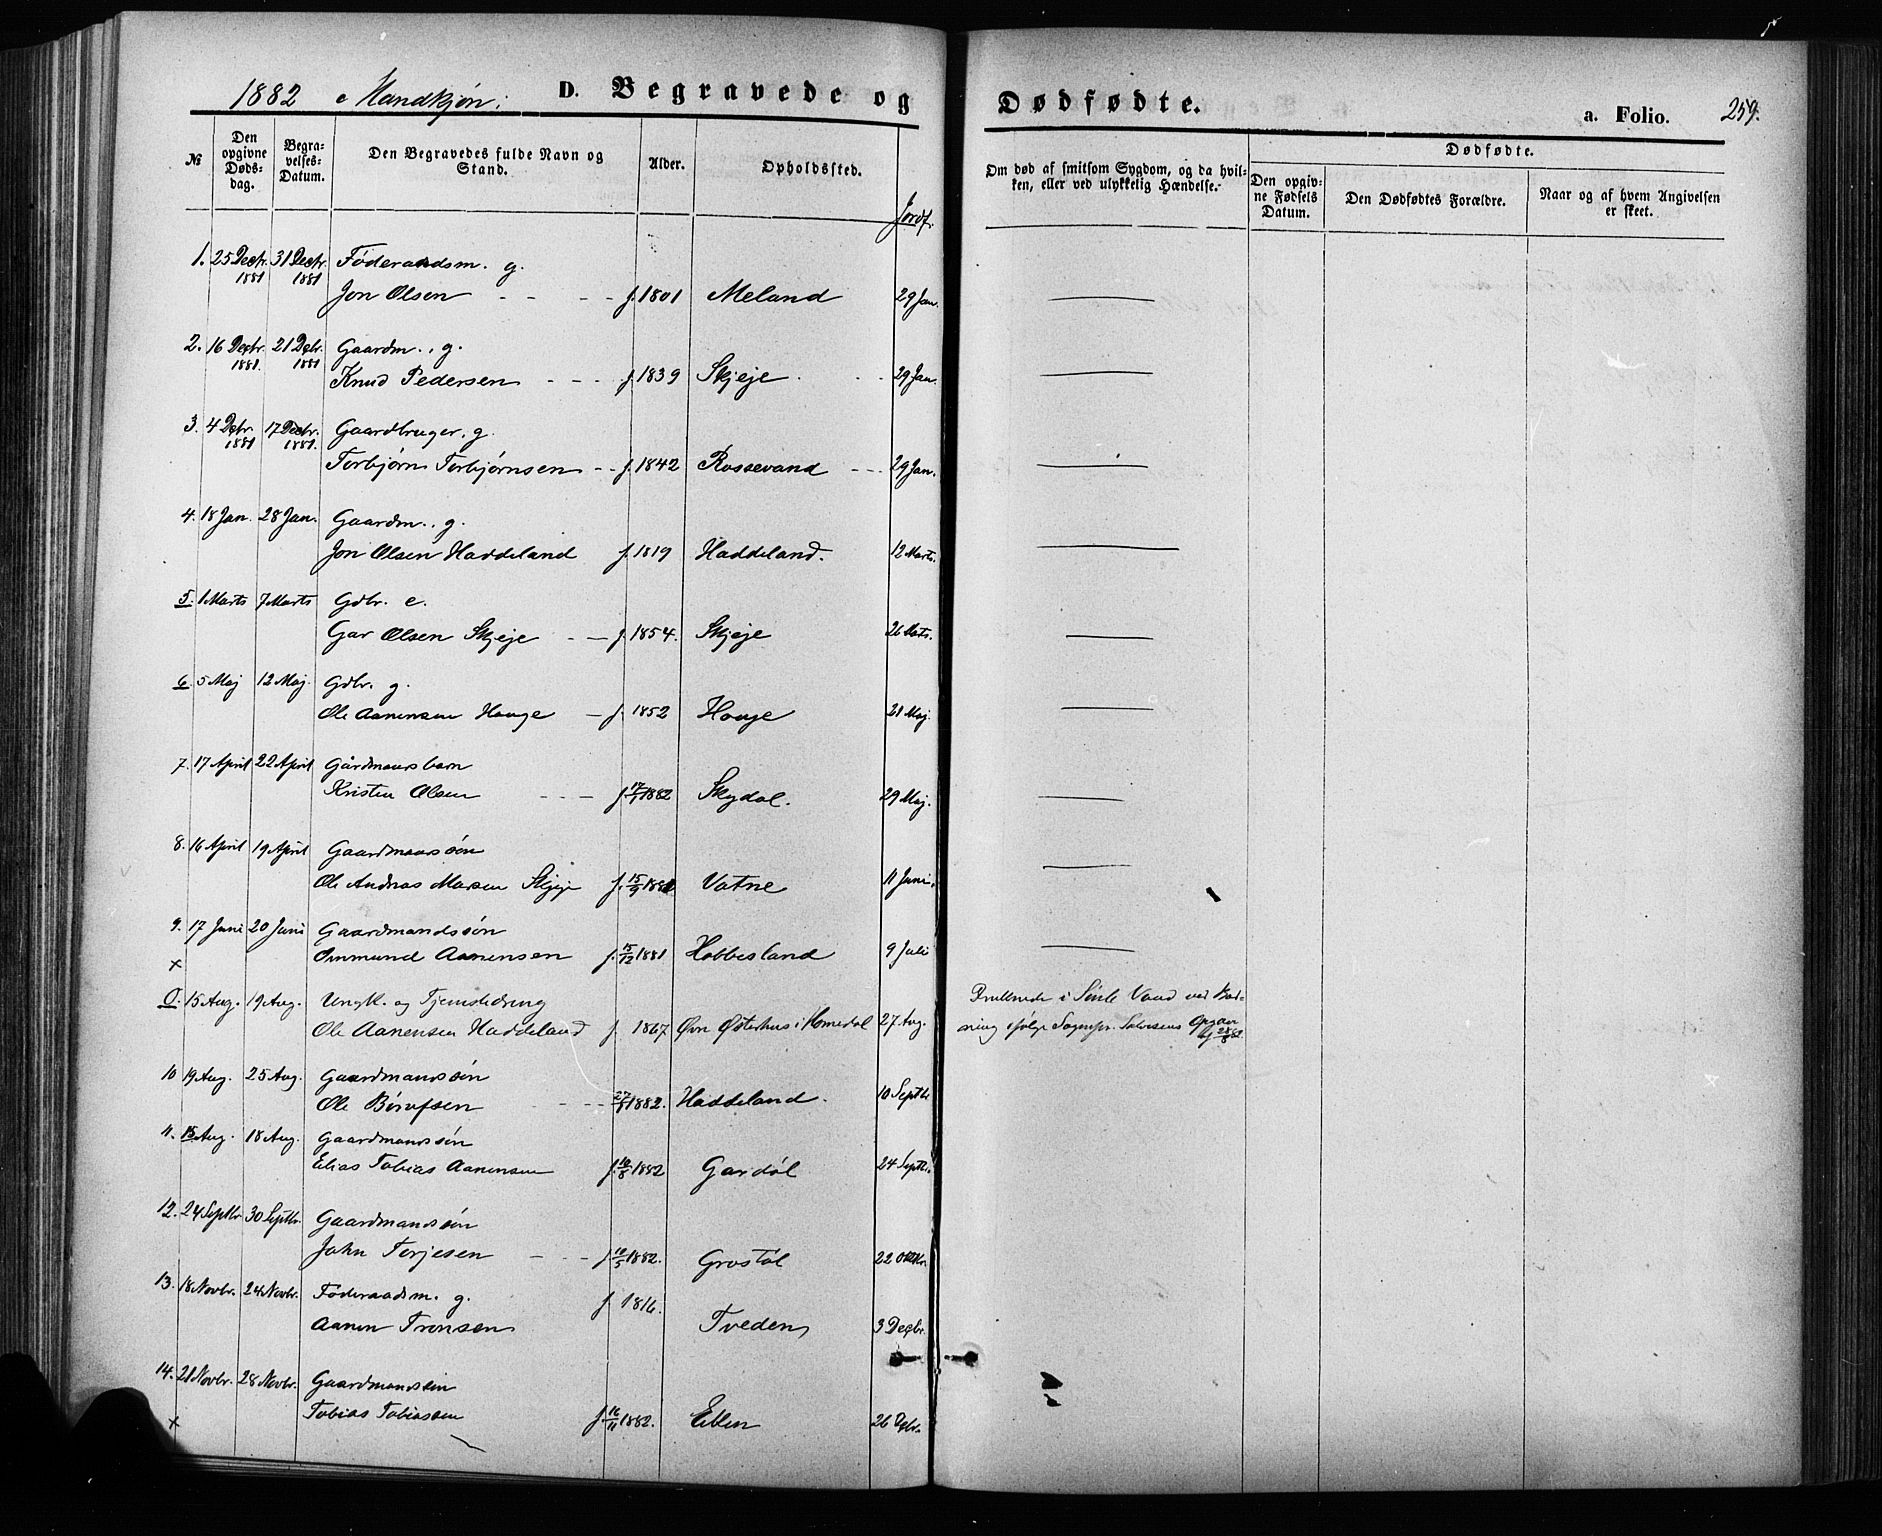 1882 Mandkjøn. D. Begravede og Dødfødte. a. Folio. 259.
№ Den opgivne Døds-dag. Begra-velses-Datum. Den Begravedes fulde Navn og Stand. Alder. Opholdssted. Jordf. Om død af smitsom Sygdom, og da hvil-ken, eller ved ulykkelig Hændelse. Dødfødte. Den opgiv-ne Fødsels Datum. Den Dødfødtes Forældre. Naar og af hvem Angivelsen er skeet.
1. 25 Decbr. 1881 31 Decbr. 1881 Føderaadsm. g.
Jon Olsen f. 1801 Meland 29 Jan.
2. 16 Decbr. 1881. 21 Dcbr. 1881 Gaardm., g.
Knud Pedersen f. 1839 Skjeje 29 Jan.
3. 4 Dcbr. 1881 17 Decbr. 1881. Gaardbruger. g.
Torbjørn Torbjørnsen f. 1842 Rossevand 29 Jan.
4. 18 Jan. 28 Jan. Gaardm., g.
Jon Olsen Haddeland f. 1819 Haddeland. 12 Marts.
5. 1 Marts 7 Marts Gdbr. e.
Olsen Skjeje f. 1854. Skjeje 26 Marts.
6. 5 Maj 12 Maj. Gdbr. g.
Ole Aanensen Houge f. 1852 Houge 21 Maj.
7. 17 April 22 April Gårdmansbarn
Kristen Olsen f. 1882 Skydal. 29 Maj.
8. 16 April 19 April Gaardmanssøn
Ole Andreas Skjeje f. 15/9 1881 Vatne 11 Juni.
9. 17 Juni 20 Juni Gaardmandssøn
x Ommund Aanensen f. 15/12 1881 Hobbesland 9 Juli
0. 15 Aug. 19 Aug. Ungk. og Tjenestedreng Druknede i Vand ved Bad-
Ole Aanensen Haddeland f. 1867 Øvr Østerhus i Homedal 27 Aug. ning ifølge Sogнepr. Salvesens Opgave
10 19 Aug. 25 Aug. Gaardmandssøn
Ole Børufsen 1882. Haddeland. 10 Septbr
11. 15 Aug. 18 Aug. Gaardmandssøn
Elias Tobias Aanensen f. 10/8 1882 Gardøl 24 Septbr.
12. 24 Septbr. 30 Septbr. Gaardmandssøn
John Torjesen f. 10/5 1882. Grostøl 22 Oktbr.
13. 18 Novbr. 24 Novbr. Føderaadsm. g. f. 1816.
Aanen Tronsen Tveden 3 Decbr.
14. 21 Novbr. 28 Novbr. Gaardmandssøn
x Tobias Tobiassen f. 16/11 1882. Eiken 26 Dcbr.